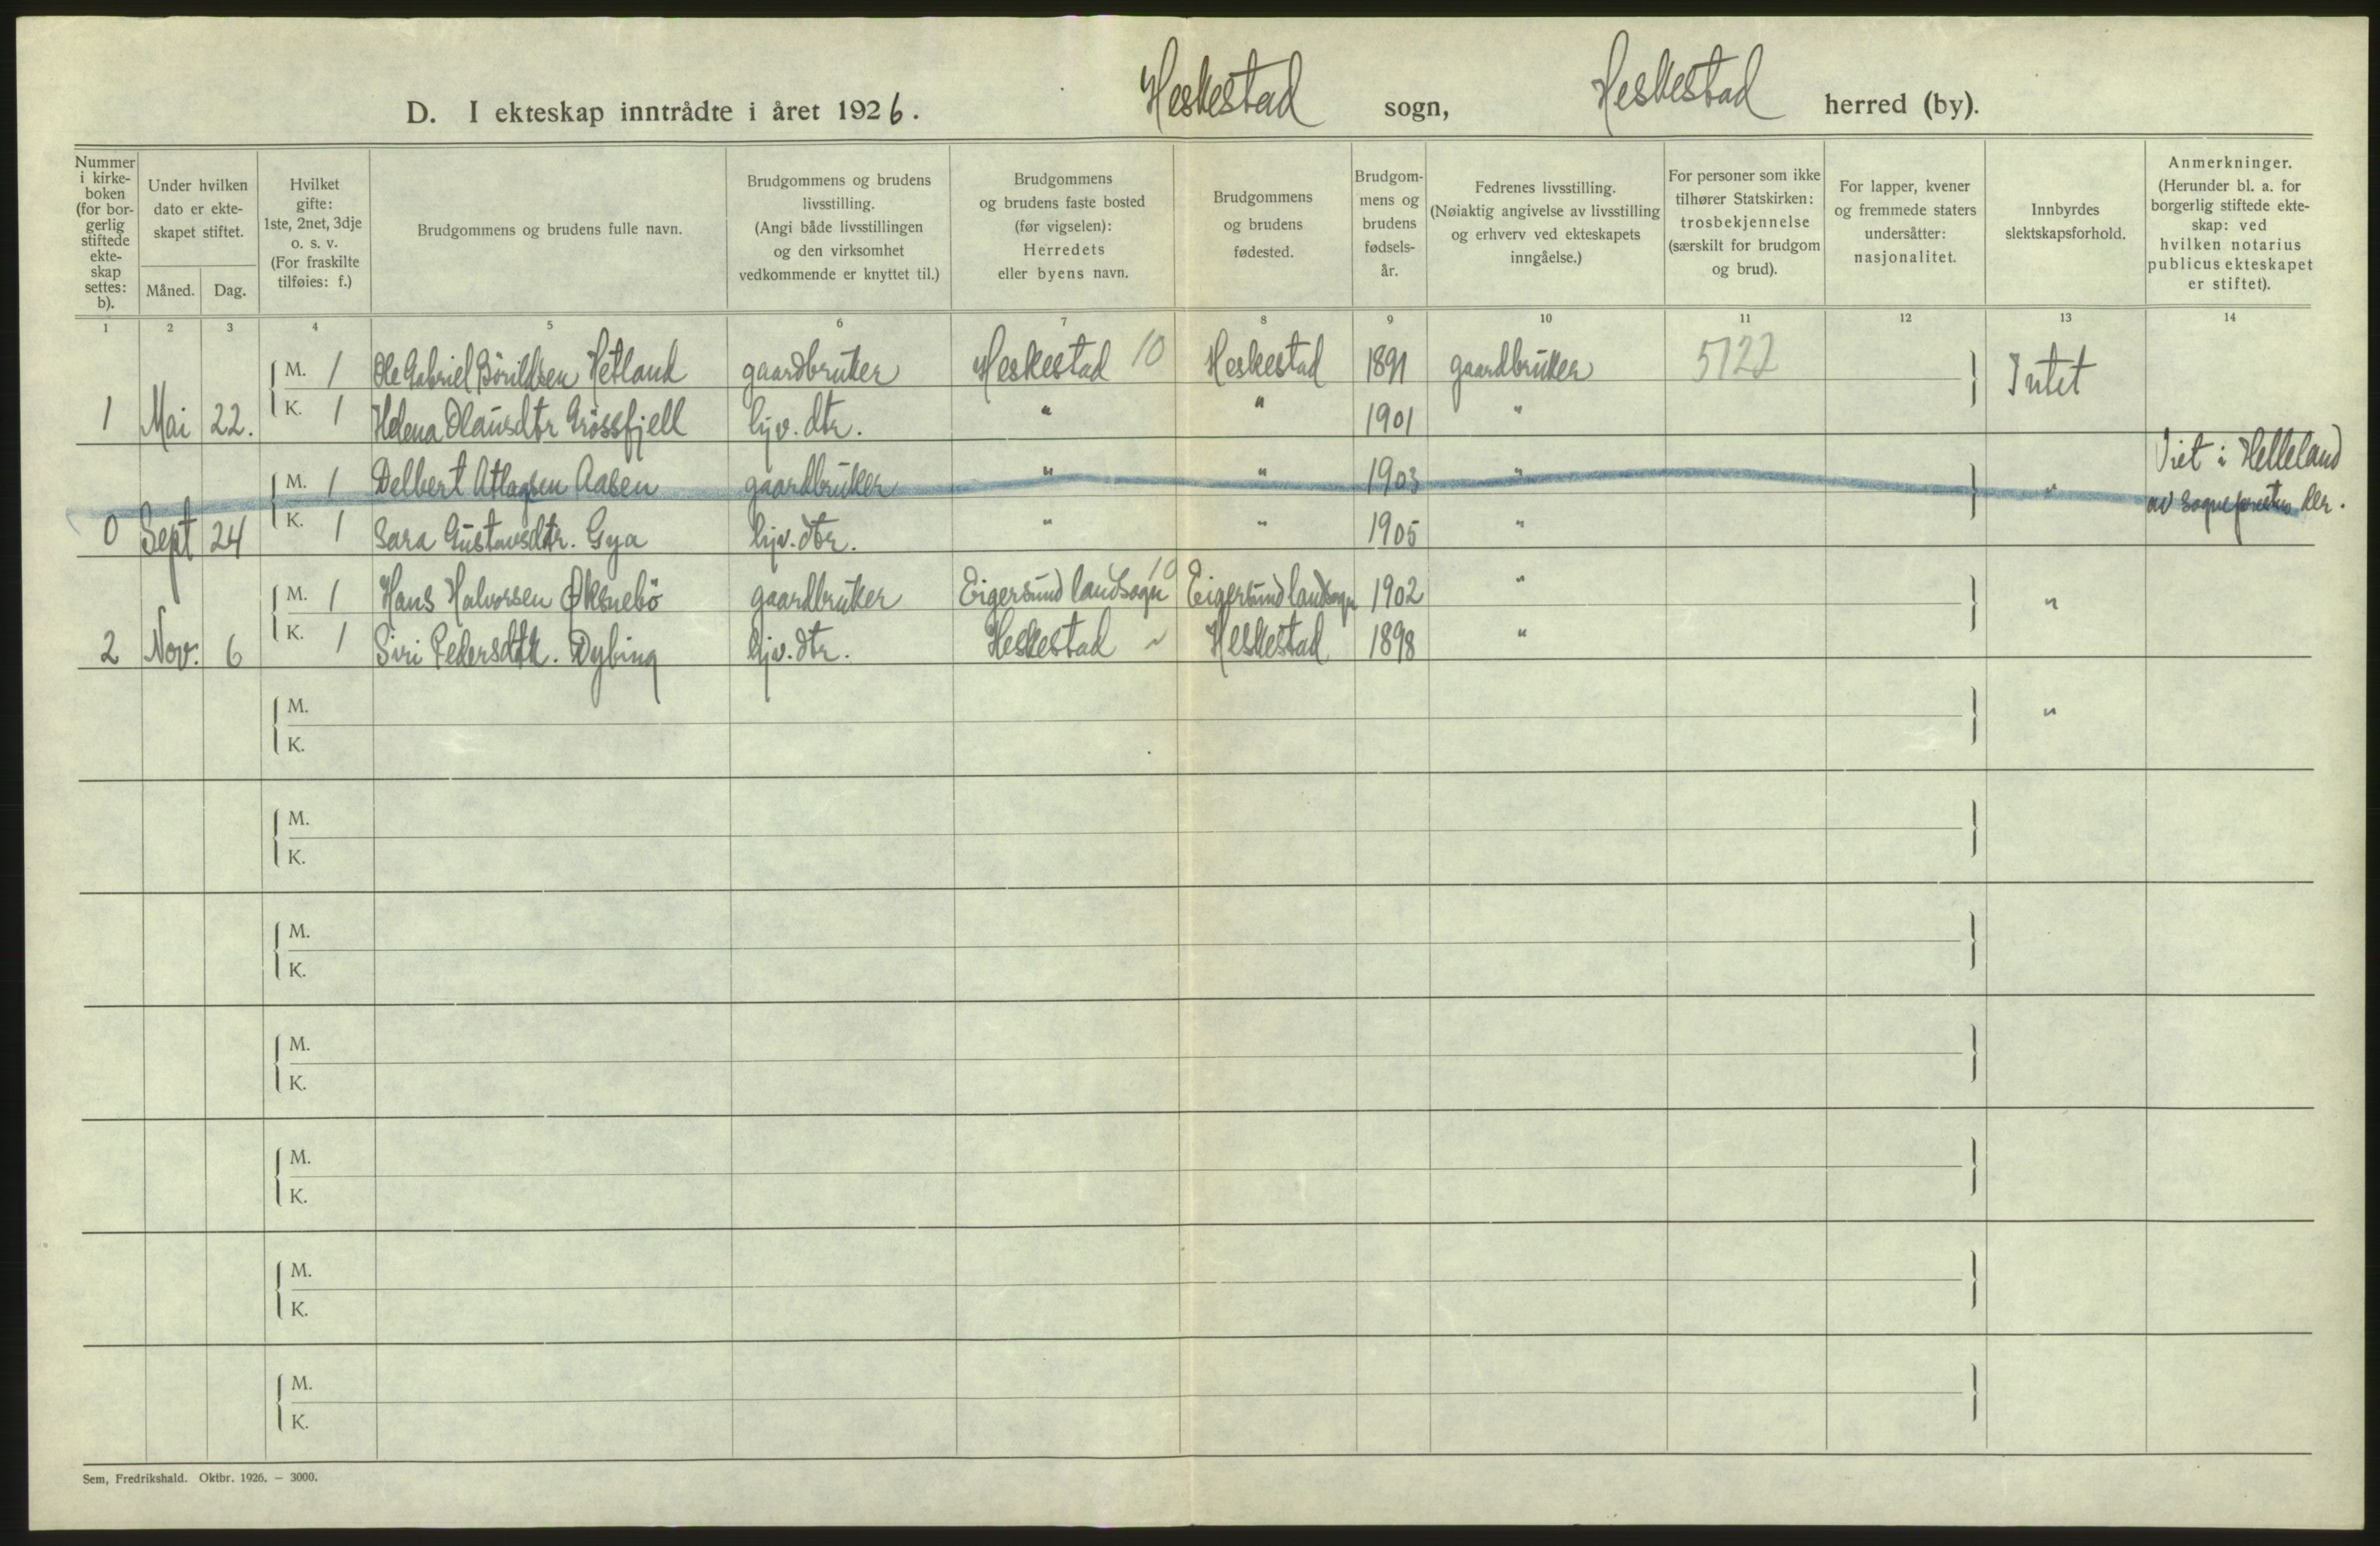 D. I ekteskap inntrådte i året 1926. Heskestad sogn, Heskestad herred (by).
Nummer i kirke- boken (for bor- gerlig stiftede ekte- skap settes: b).
Under hvilken dato er ekte- skapet stiftet.
Måned. Dag.
Hvilket gifte: 1ste, 2net, 3dje o. s. v. (For fraskilte tilføies: f.)
Brudgommens og brudens fulle navn.
Brudgommens og brudens livsstilling. (Angi både livsstillingen og den virksomhet vedkommende er knyttet til.)
Brudgommens og brudens faste bosted (før vigselen): Herredets eller byens navn.
Brudgommens og brudens fødested.
Brudgom- mens og brudens fødsels- år.
Fedrenes livsstilling. (Nøiaktig angivelse av livsstilling og erhverv ved ekteskapets inngåelse.)
For personer som ikke tilhører Statskirken: trosbekjennelse (særskilt for brudgom og brud).
For lapper, kvener og fremmede staters undersåtter: nasjonalitet.
Innbyrdes slektskapsforhold.
Anmerkninger. (Herunder bl. a. for borgerlig stiftede ekte- skap: ved hvilken notarius publicus ekteskapet er stiftet).
1 2 3 4 5 6 7 8 9 10 11 12 13 14
M. 1 Ole Gabriel Børildsen Hetland gaardbruker Heskestad 10 Heskestad 1891 gaardbruker 5122 Intet
1 Mai 22. K. 1 Helena Olausdtr Grøssfjell hjv. dtr. " " 1901 "
M. 1 Delbert Atlagsen Aasen gaardbruker " " 1903 " " Viet i Helleland av sognepresten der.
0 Sept 24 K. 1 Sara Gustavsdtr. Gya hjv. dtr. " " 1905 "
M. 1 Hans Halvorsen Øksnebö gaardbruker Eigersund landsogn 10 Eigersund landsogn 1902 " "
2 Nov. 6 K. 1 Siri Pedersdtr. Dybing hjv. dtr. Heskestad ~ Heskestad 1898 "
M. "
K.
M.
K.
M.
K.
M.
K.
M.
K.
M.
K.
M.
K.
Sem, Fredrikshald. Oktbr. 1926. — 3000.